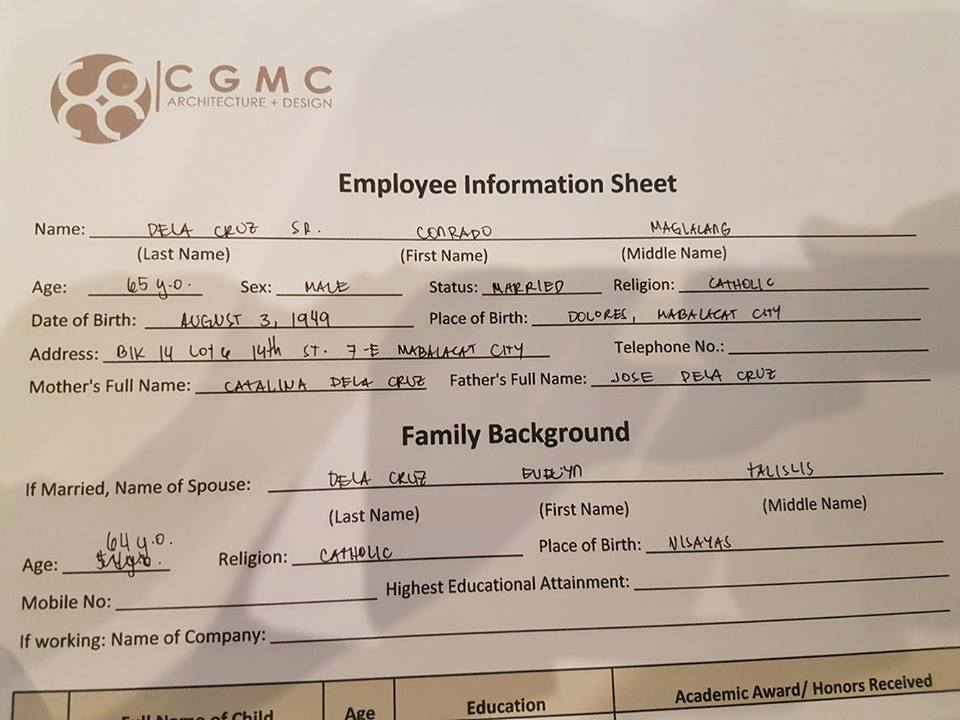 CGMC
ARCHITECTURE + DESIGN
Employee Information Sheet
Name: DELA CRUZ SR. CONRADO MAGLALANG
(Last Name) (First Name) (Middle Name)
Age: 65 y.o. Sex: MALE Status: MARRIED Religion: CATHOLIC
Date of Birth: AUGUST 3, 1949 Place of Birth: DOLORES, MABALACAT CITY
Address: Blk 14 Lot 6 14th ST. 7-E MABALACAT CITY Telephone No.:
Mother's Full Name: CATALINA DELA CRUZ Father's Full Name: JOSE DELA CRUZ
Family Background
If Married, Name of Spouse: DELA CRUZ EVELYN TALISLIS
(Last Name) (First Name) (Middle Name)
64 y.o.
Age: Religion: CATHOLIC Place of Birth: VISAYAS
Mobile No: Highest Educational Attainment:
If working: Name of Company:
Full Name of Child Age Education Academic Award/ Honors Received